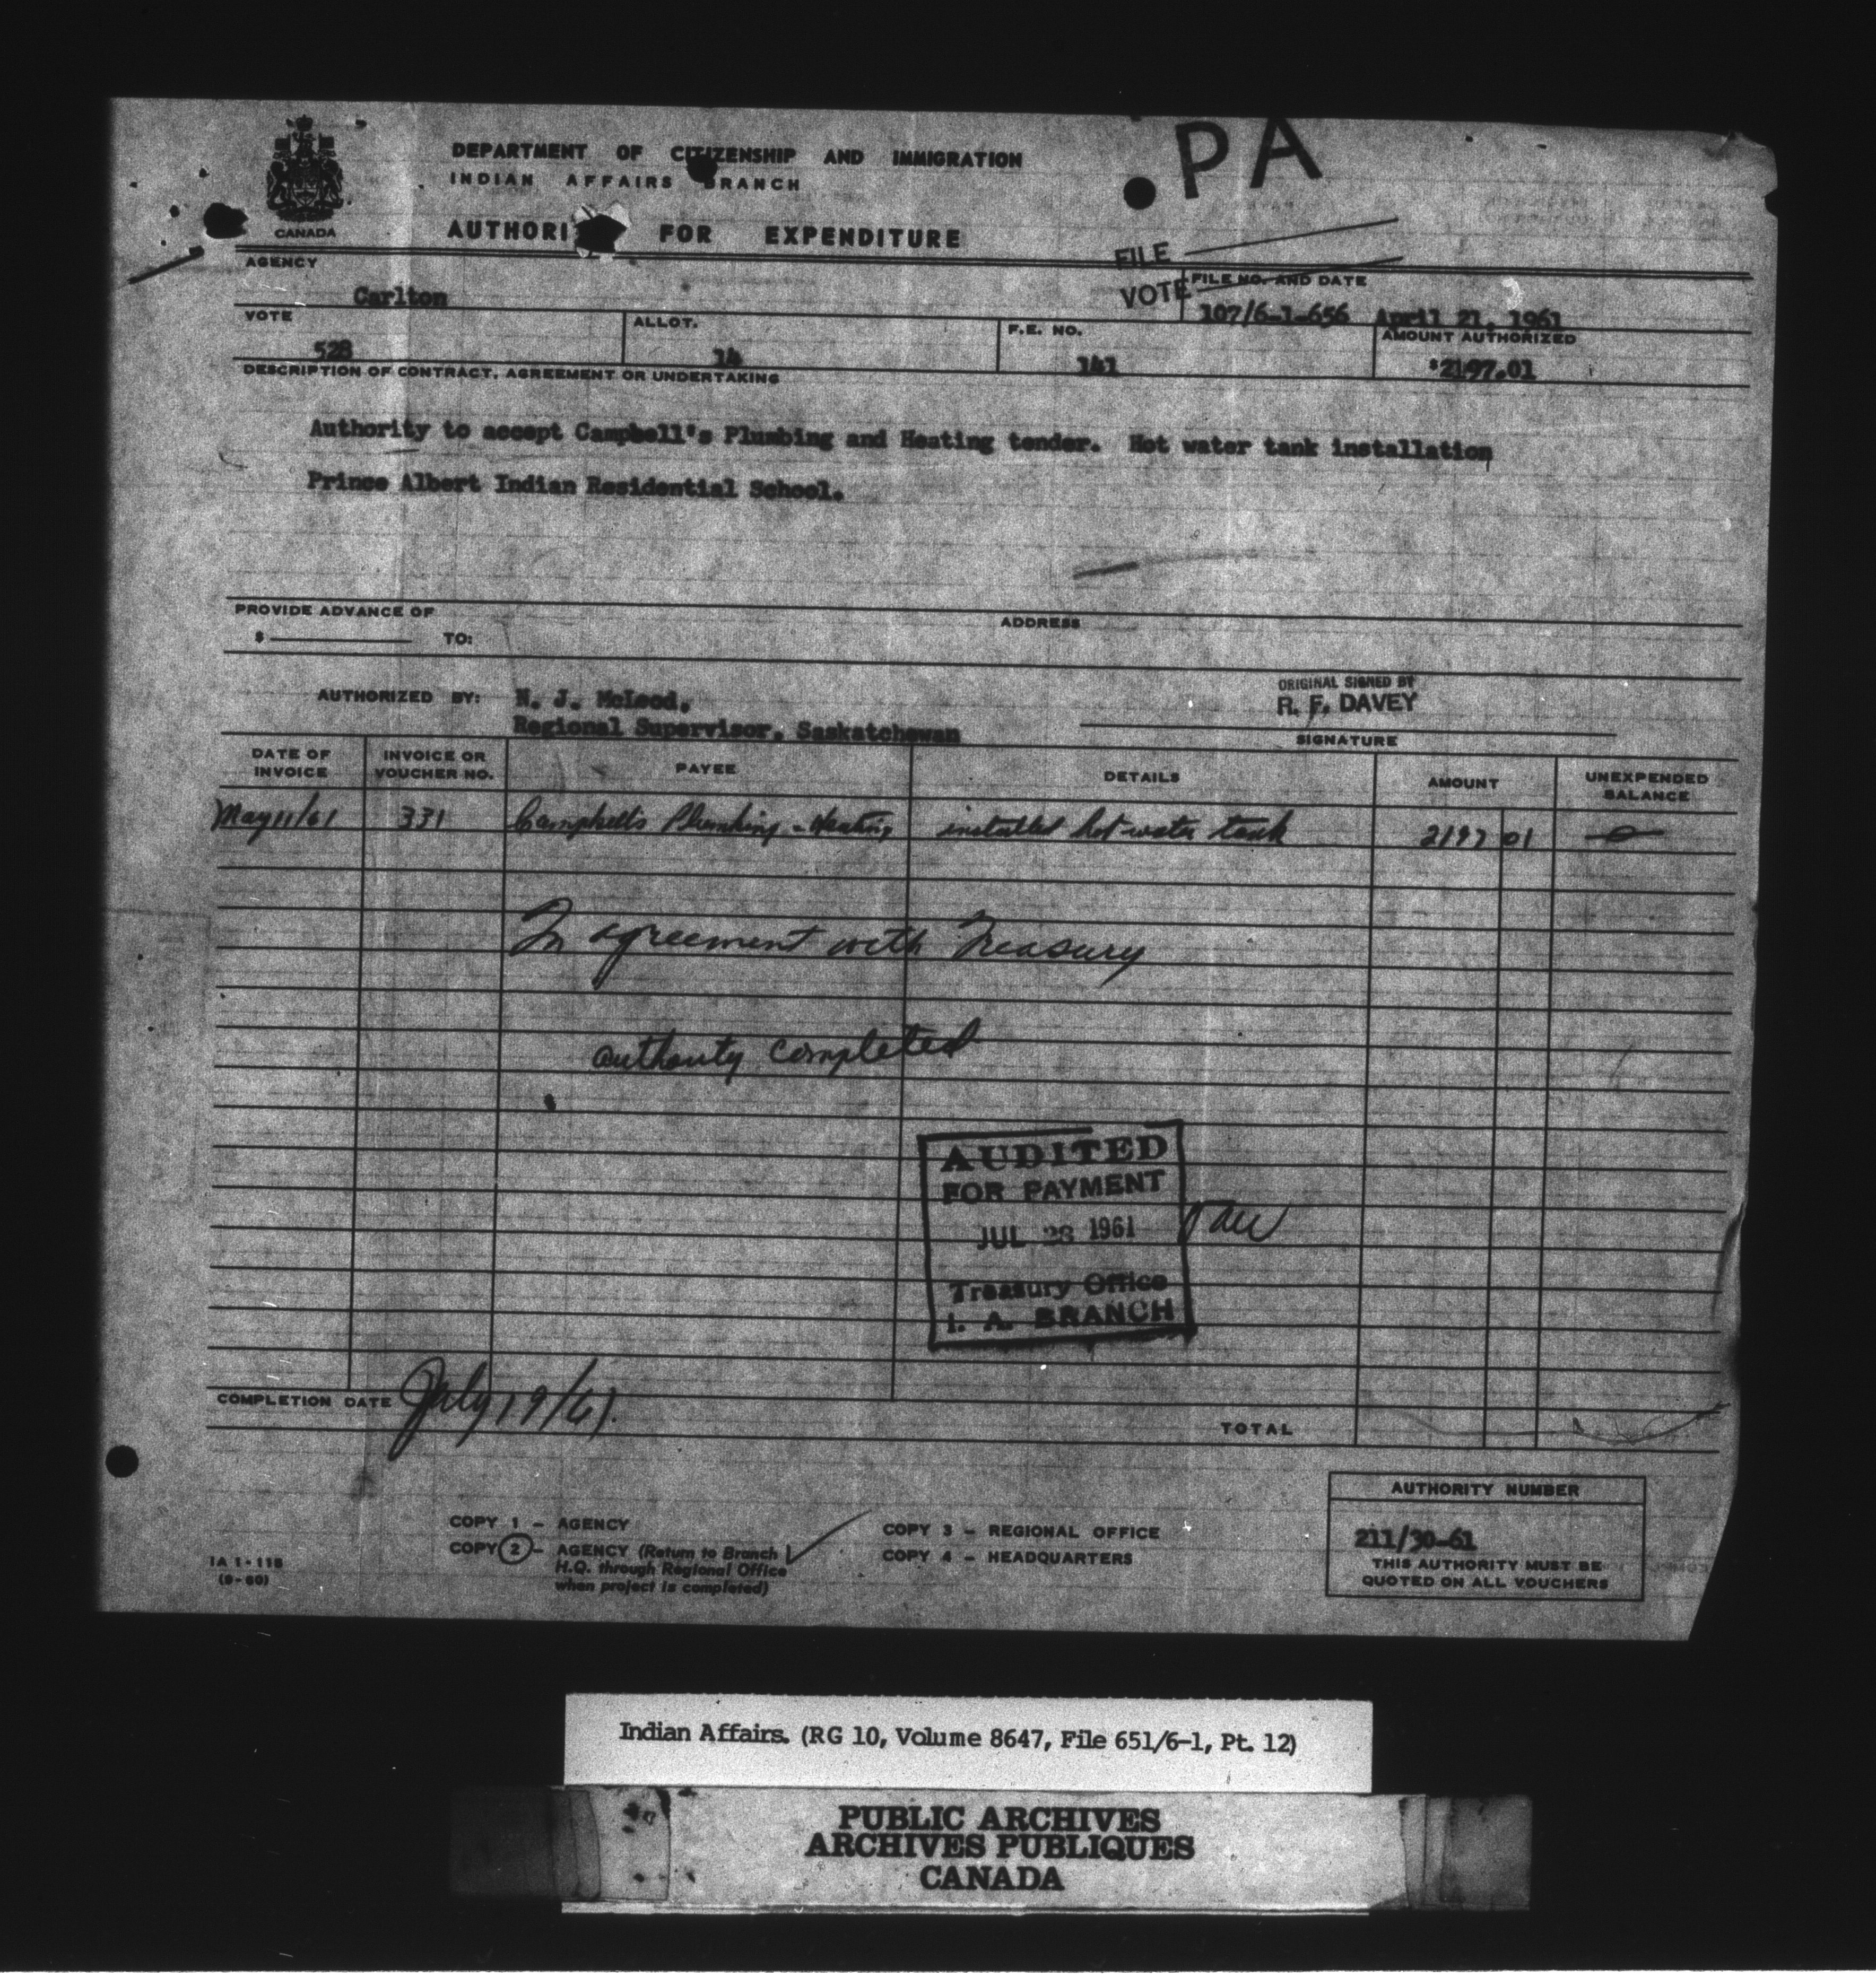 DEPARTMENT OF CITIZENSHIP AND IMMIGRATION
INDIAN AFFAIRS BRANCH
PA
CANADA
AUTHORI FOR EXPENDITURE
FILE
AGENCY
Carlton
VOTE
FILE NO. AND DATE
107/6-1-656 April 21, 1961
VOTE
528
ALLOT.
14
F.E. NO.
141
AMOUNT AUTHORIZED
$2197.01
DESCRIPTION OF CONTRACT, AGREEMENT OR UNDERTAKING
Authority to accept Campbell's Plumbing and Heating tender. Hot water tank installation
Prince Albert Indian Residential School.
PROVIDE ADVANCE OF
ADDRESS
$ TO:
AUTHORIZED BY: N. J. McLeod,
Regional Supervisor, Saskatchewan
ORIGINAL SIGNED BY
R. F. DAVEY
SIGNATURE
DATE OF INVOICE
INVOICE OR VOUCHER NO.
PAYEE
DETAILS
AMOUNT
UNEXPENDED BALANCE
May 11/61 331 Campbell's Plumbing - Heating installed hot water tank 2197 01 0
In agreement with Treasury
authority completed
AUDITED
FOR PAYMENT
JUL 28 1961
Treasury Office
I. A. BRANCH
COMPLETION DATE July 19/61.
TOTAL
AUTHORITY NUMBER
211/30-61
THIS AUTHORITY MUST BE
QUOTED ON ALL VOUCHERS
COPY 1 - AGENCY
COPY 2 - AGENCY (Return to Branch
H.Q. through Regional Office
when project is completed)
COPY 3 - REGIONAL OFFICE
COPY 4 - HEADQUARTERS
IA 1-118
(9-60)
Indian Affairs. (RG 10, Volume 8647, File 651/6-1, Pt. 12)
PUBLIC ARCHIVES
ARCHIVES PUBLIQUES
CANADA